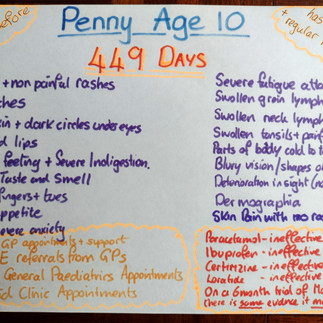 before
has
+ regular
Penny Age 10
449 DAYS
+ non painful rashes
ches
kin + dark circles under eyes
d lips
feeling + Severe Indigestion.
Taste and Smell
fingers + toes
appetite
evere anxiety
Severe fatigue atta
Swollen groin lymph
Swollen neck lymph
Swollen tonsils + pai
Parts of body cold to th
Blury vision/shapes o
Deterioration in sight (no
Dermographia
Skin Pain with no ra
GP appointments + support
E referrals from GPs
General Paediatrics Appointments
id Clinic Appointments
Paracetamol - ineffective
Ibuprofen - ineffective
Certirizine - ineffective
Loratide - ineffective
On a 6month trial of Mo
there is some evidence it m